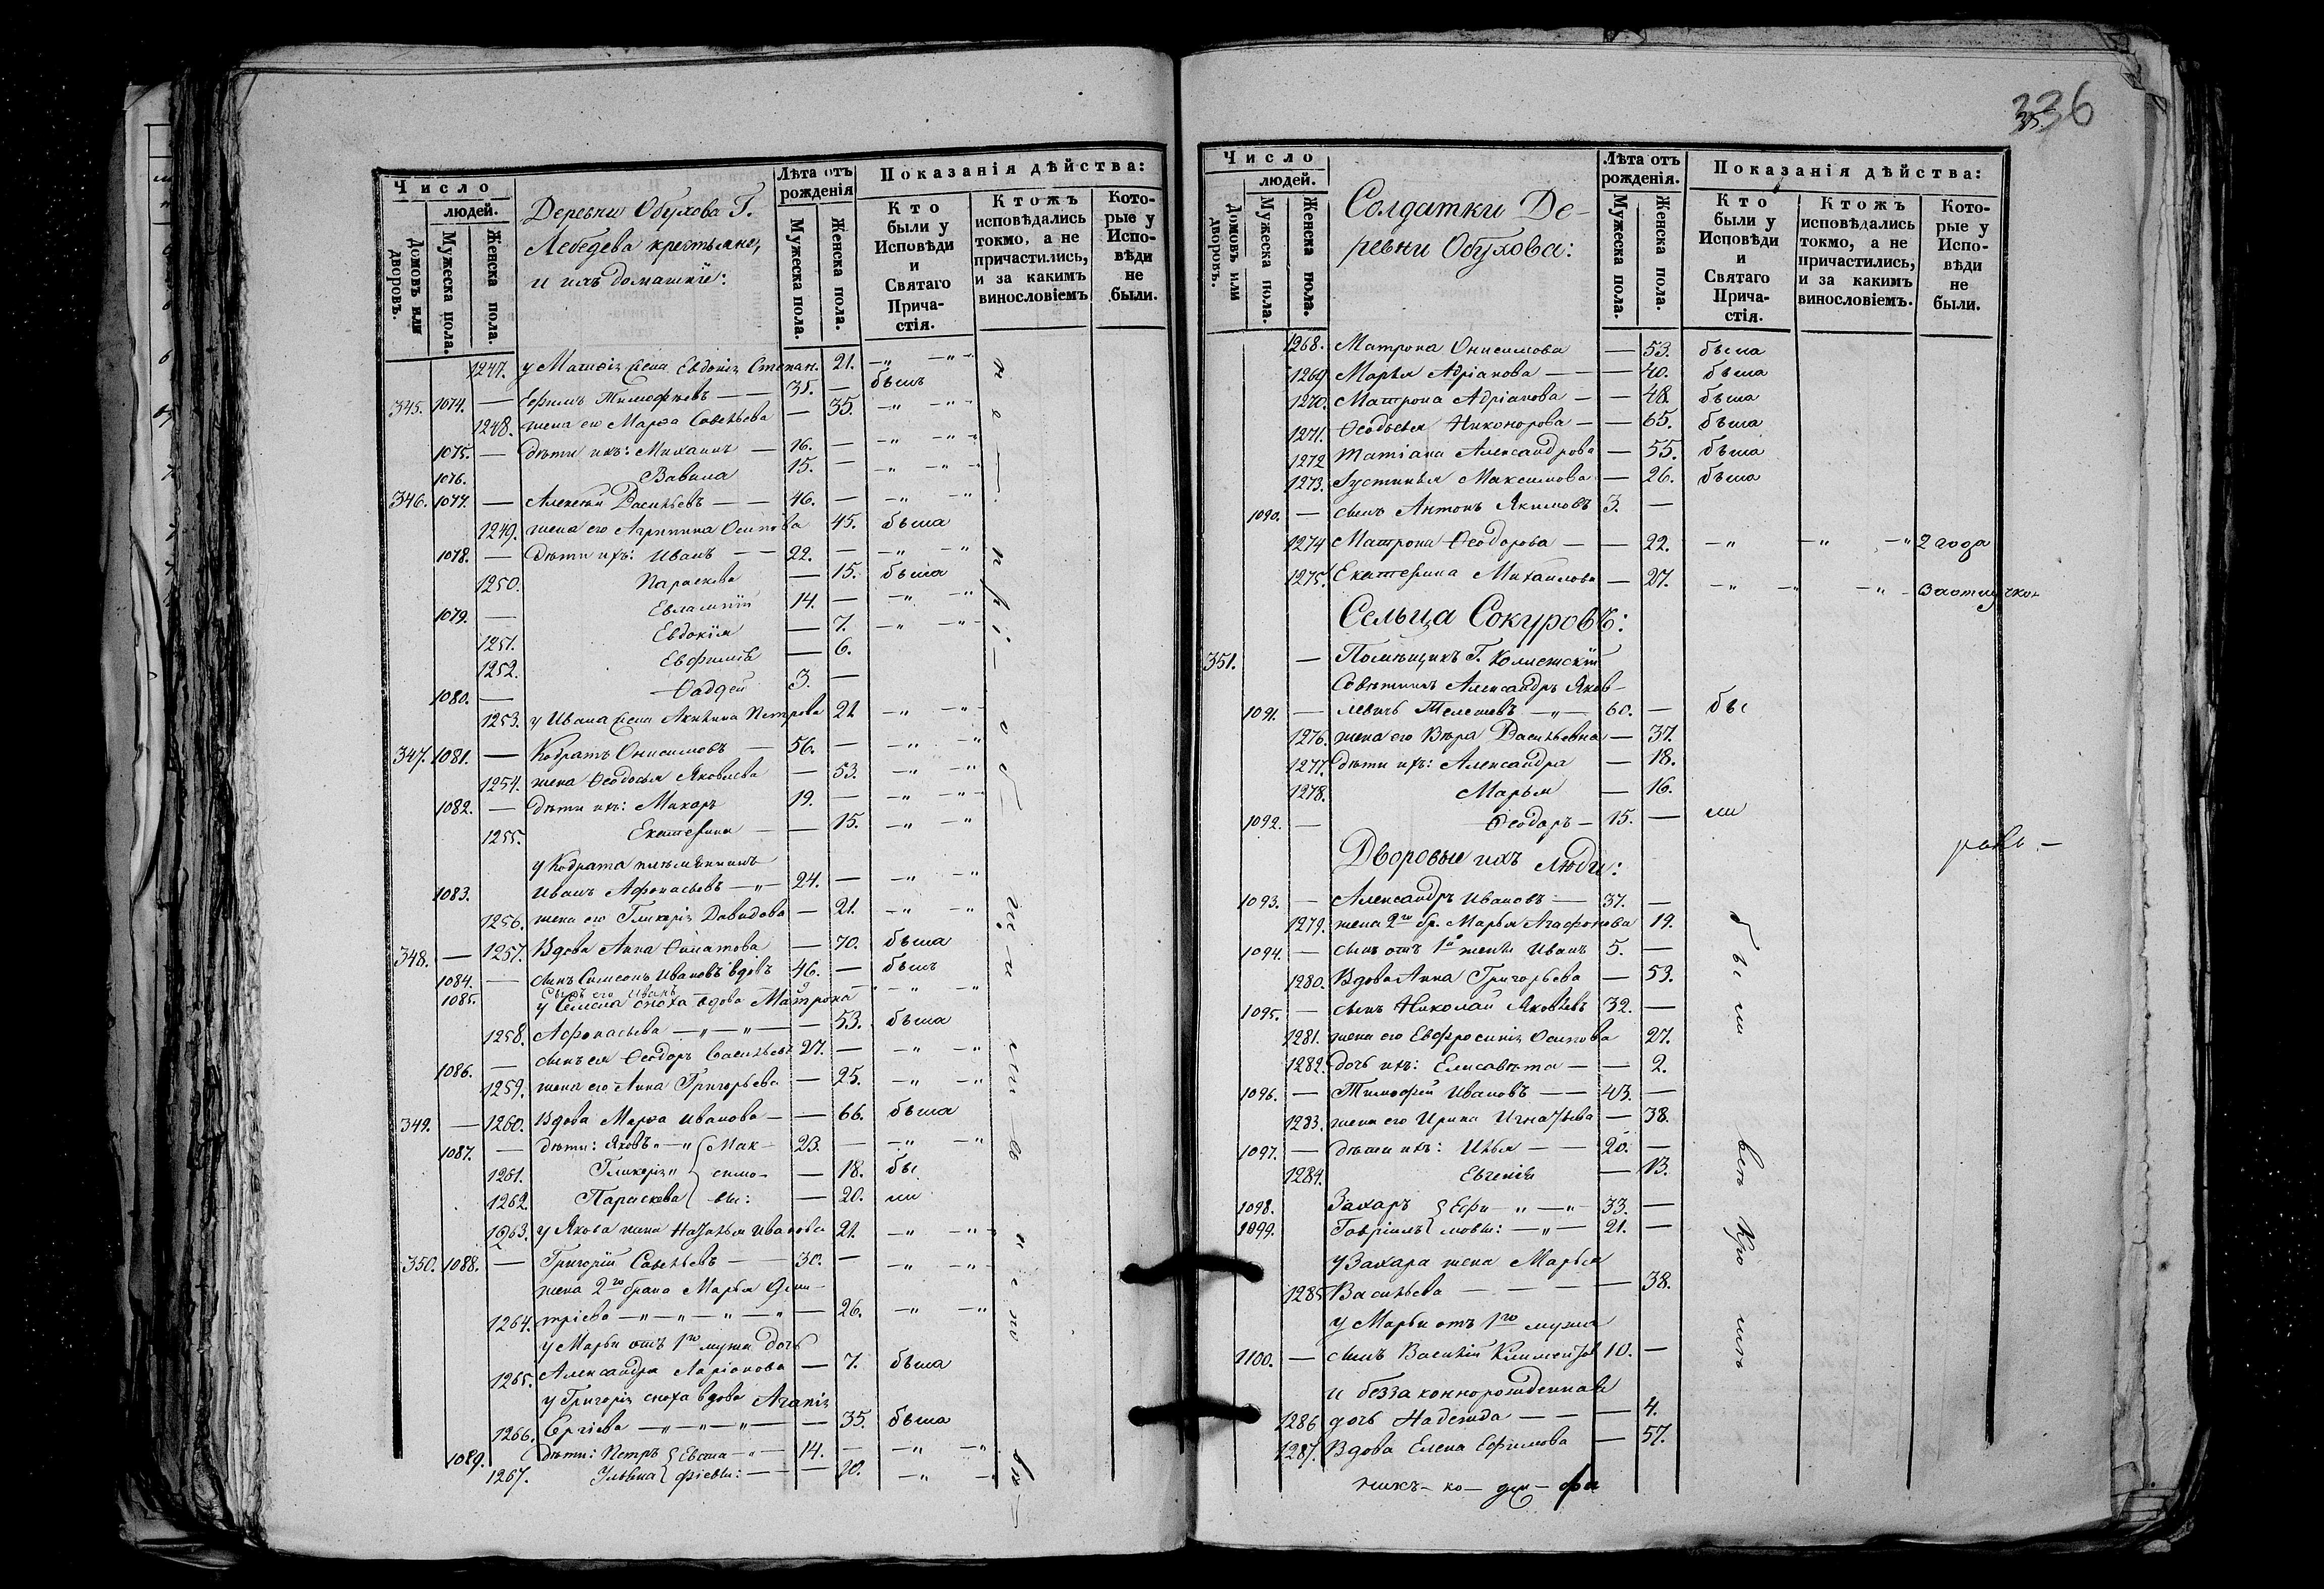 Число
людей.
Домовъ или дворовъ.
Мужеска пола.
Женска пола.
Деревни Обухова Г.
Лебедева крестьяне,
и ихъ домашніе:
Лѣта отъ рожденія
Мужеска пола.
Женска пола.
Показанія дѣйства:
Кто были у Исповѣди и Святаго Причастія.
Ктожъ исповѣдались токмо, а не причастились, и за какимъ винословіемъ
Которые у Исповѣди не были.
1247. у Матѳія жена Евдокія Степан. 21. —„ —„—
345. 1074. — Ефимъ Тимофѣевъ — — 35. — былъ
1248. жена его Марѳа Савельева — 35. —„ —„—
1075. — дѣти ихъ: Михаилъ — 16. — —„ —„—
1076. Вавила 15. — —„ —„—
346. 1077. — Алексѣй Васильевъ — — 46. — —„ —„
1249. жена его Агрипина Осипова 45. была
1078. — Дѣти ихъ: Иванъ — — 22. — —„ —„
1250. Параскева — 15. была
1079. — Евлампій 14. — —„ —„
1251. Евдокія — 7. —„ —„
1252. Евфимія — 6.
1080. — Ѳаддей 3. —
1253. у Ивана жена Акилина Петрова 21 —„ —„
347. 1081. — Кодратъ Онисимовъ — 56. — —„ —„
1254. жена Ѳеодосья Яковлева — 53. —„ —„
1082. — Дѣти ихъ: Макаръ 19. — —„ —„
1255. Екатерина — — 15. —„ —„
у Кодрата племянникъ
1083. Иванъ Афонасьевъ —„— 24. — —„ —„
1256. жена его Гликерія Давидова — 21. —„ —„
348. — 1257. Вдова Анна Филатова — 70. была
1084. — сынъ Симеонъ Ивановъ вдовъ 46. — былъ
1085. Сынъ его Иванъ
у Семена сноха вдова Матрона
1258. Афонасьева —„—„— — 53. была
1086. — сынъ ея Ѳеодоръ Васильевъ 27. — —„ —„
1259. жена его Анна Григорьева — 25. —„ —„
349. — 1260. Вдова Марѳа Иванова — — 66. была
1087. — дѣти: Яковъ —„ Мак- 23. — —„ —„
1261. Гликерія „ симо- — 18. бы
1262. Параскева вы: — 20. ли
1263. у Якова жена Наталья Иванова 21. —„ —„
350. 1088. — Григорій Савельевъ — 30. — —„ —„
жена 2го брака Марья Дми-
1264. тріева —„—„—„—„ — 26. —„ —„
у Марьи отъ 1го мужа дочь
1265. Александра Ларіонова — 7. была
у Григорія сноха вдова Агапія
1266. Сергіева —„—„—„— — 35. была
1089. Дѣти: Петръ Евста- „— 14. — —„ —„
1267. Ульяна фіевы: — — 10. —„ —
336
35.
Число
людей.
Домовъ или дворовъ.
Мужеска пола.
Женска пола.
Солдатки Де-
ревни Обухова:
Лѣта отъ рожденія.
Мужеска пола.
Женска пола.
Показанія дѣйства:
Кто были у Исповѣди и Святаго Причастія.
Ктожъ исповѣдались токмо, а не причастились, и за какимъ винословіемъ.
Которые у Исповѣди не были.
1268. Матрона Онисимова — 53. была
1269. Марья Адріанова — — 40. была
1270. Матрона Адріанова — — 48. была
1271. Ѳеодосья Никонорова — — 65. была
1272 Татіана Александрова — 55. была
1273. Іустинья Максимова — 26. была
1090. — сынъ Антонъ Якимовъ 3. —
1274 Матрона Ѳеодорова — — 22. —„ —„ —„ 2 года
1275. Екатерина Михаилова — 27. —„ —„ —„ за отлучкою
Сельца Сокуровъ:
351. — Помѣщикъ Г. Колежскій
Совѣтникъ Александръ Яков-
1091. — левичъ Телешевъ —„— 60. — бы
1276. жена его Вѣра Васильевна — 37.
1277. Дѣти ихъ: Александра — 18.
1278. Марья — 16.
1092. — Ѳеодоръ — 15. — ли
Дворовые ихъ люди:
1093. — Александръ Ивановъ — 37. —
1279. жена 2го бр. Марья Агафонова 19.
1094. — сынъ отъ 1й жены Иванъ 5. —
1280. Вдова Анна Григорьева — 53.
1095. — сынъ Николай Яковлевъ 32. —
1281. жена его Евфросинія Осипова 27.
1282. дочь ихъ: Елисавета — — 2.
1096. — Тимофей Ивановъ — — 43. —
1283. жена его Ирина Игнатьева — 38.
1097. — Дѣти ихъ: Илья — — 20. —
1284. Евгенія — 13.
1098. Захаръ Ефи- „ —„ 33. —
1099. Гавріилъ мовы: —„— 21. —
у Захара жена Марья
1285 Васильева — — — — 38.
у Марьи отъ 1го мужа
1100. — сынъ Василій Климентовъ 10. —
и беззаконнорожденная
1286 дочь Надежда — — — 4.
1287. Вдова Елена Ефимова — 57.